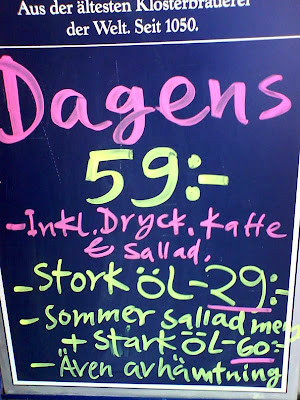 Aus der ältesten Klosterbrauerei
der Welt. Seit 1050.
Dagens
59:-
-Inkl. Dryck. Kaffe
& Sallad.
-Stork ÖL-29:-
-Sommer sallad meny
+ Stark ÖL-60:-
-Även avhämtning